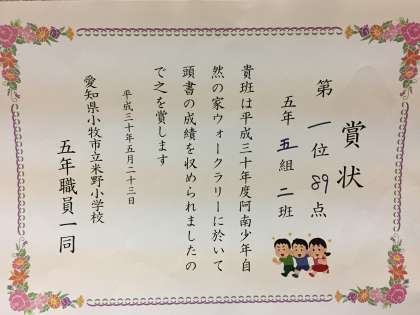 賞状
第一位 89点
五年五組二班
貴班は平成三十年度阿南少年自
然の家ウォークラリーに於いて
頭書の成績を収められましたの
で之を賞します
平成三十年五月二十三日
愛知県小牧市立米野小学校
五年職員一同